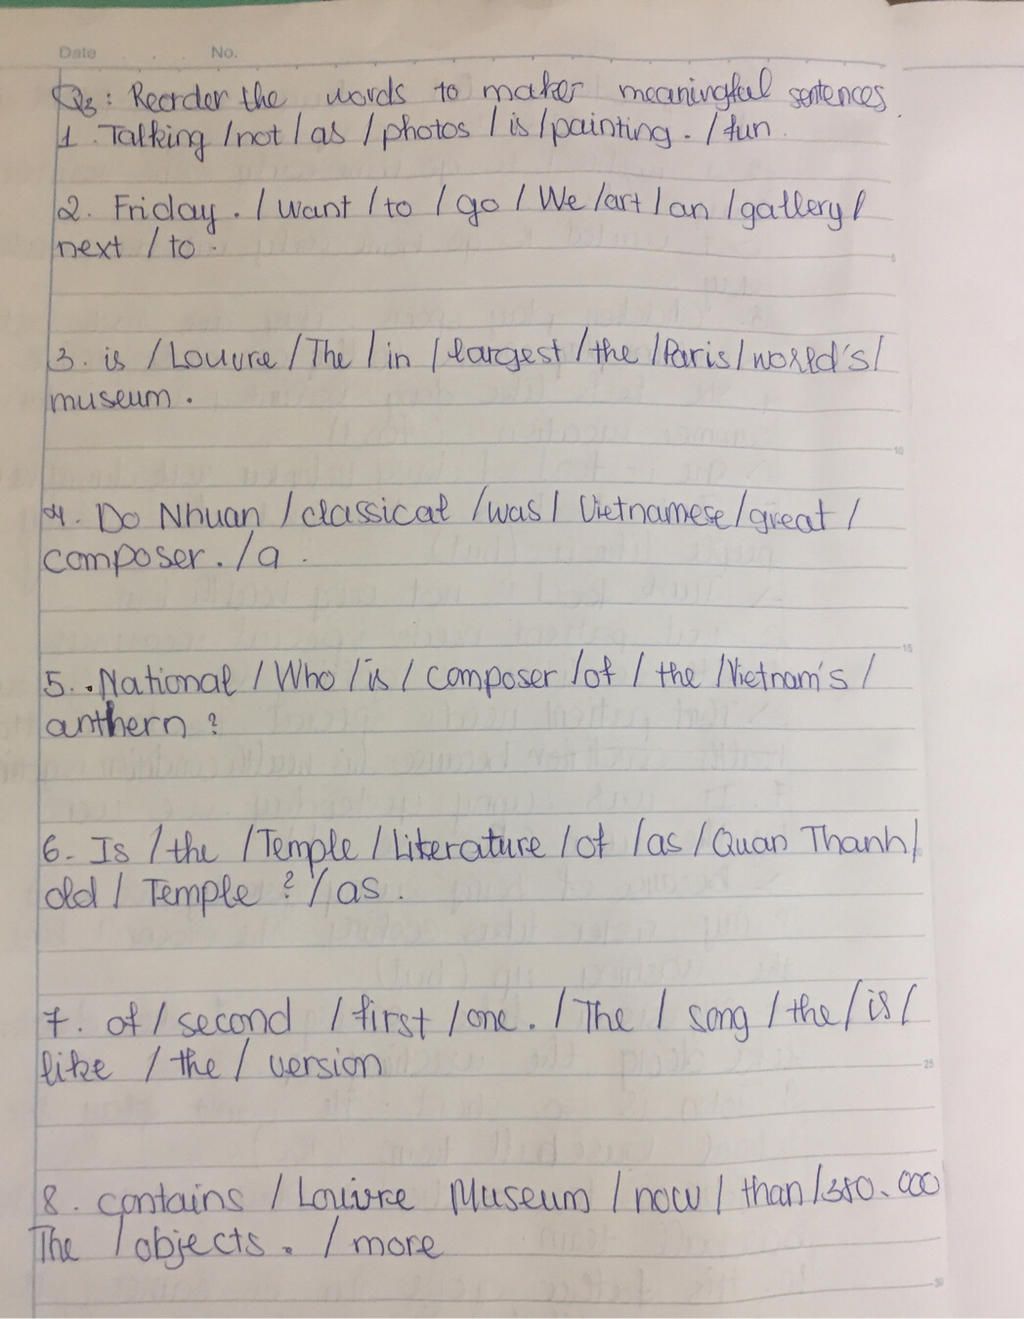 Date . . No.
Q3 : Reorder the words to maker meaningful sentences.
1. Talking / not / as / photos / is / painting. / fun.
2. Friday. / want / to / go / We / art / an / gallery /
next / to.
3. is / Louvre / The / in / largest / the / Paris / world's /
museum.
4. Do Nhuan / classical / was / Vietnamese / great /
composer. / a.
5. National / Who / is / composer / of / the / Vietnam's /
anthern ?
6. Is / the / Temple / Literature / of / as / Quan Thanh /
old / Temple ? / as.
7. of / second / first / one. / The / song / the / is /
like / the / version
8. contains / Louivre Museum / now / than / 380.000
The / objects. / more